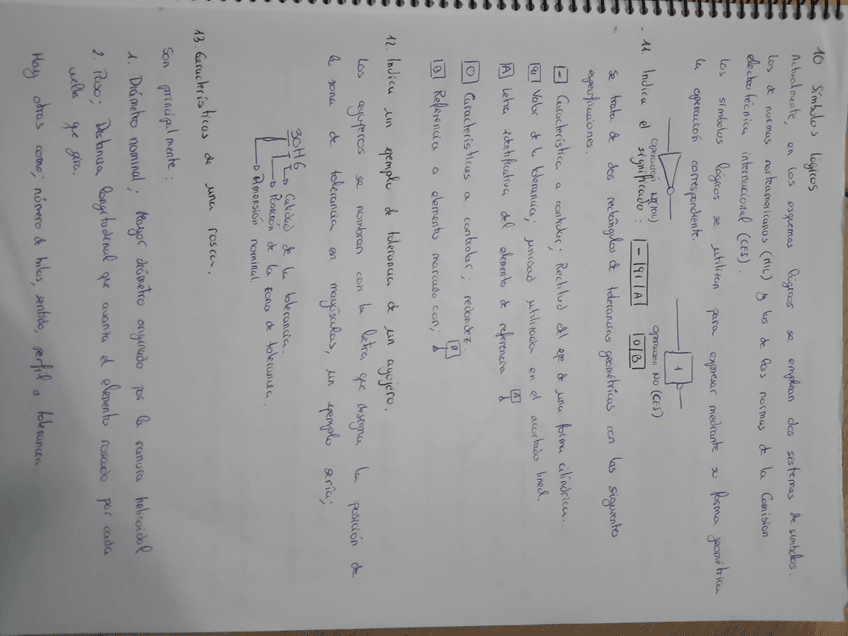 10 Símbolos lógicos
Actualmente, en los esquemas lógicos se emplean dos sistemas de símbolos.
Los de normas norteamericanas (MIL) y los de las normas de la Comision
electrotécnica internacional (CEI).
Los símbolos lógicos se utilizan para expresar mediante su forma geométrica
la operación correspondiente.
operación NO (MIL)
1
operacion NO (CEI)
11 Indica el significado: - 0,1 A O B
Se trata de dos rectángulos de tolerancias geométricas con las siguientes
especificaciones.
- Característica a controlar; Rectitud del eje de una forma cilíndrica.
0,1 Valor de la tolerancia; unidad utilizada en el acotado lineal.
A Letra identificativa del elemento de referencia A
O Características a controlar; redondez.
B Referencia a elemento marcado con; B
12. Indica un ejemplo de tolerancia de un agujero.
Los agujeros se nombran con la letra que designa la posición de
la zona de tolerancia en mayúsculas, un ejemplo sería;
30H6
Calidad de la tolerancia.
Posición de la zona de tolerancia.
Dimensión nominal.
13. Características de una rosca.
Son principalmente:
1. Diámetro nominal; Mayor diámetro originado por la ranura helicoidal
2. Paso; Distancia longitudinal que avanza el elemento roscado por cada
vuelta que gira.
Hay otras como; número de hilos, sentido, perfil o tolerancia